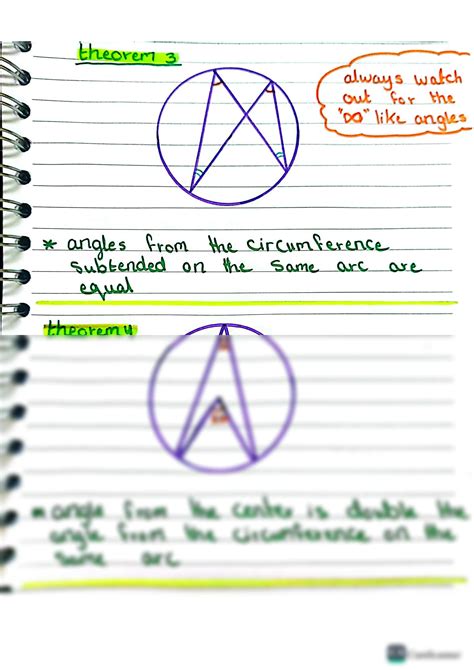 theorem 3
always watch
out for the
"∞" like angles
* angles from the circumference
subtended on the same arc are
equal
theorem 4
* angle from the center is double the
angle from the circumference on the
same arc